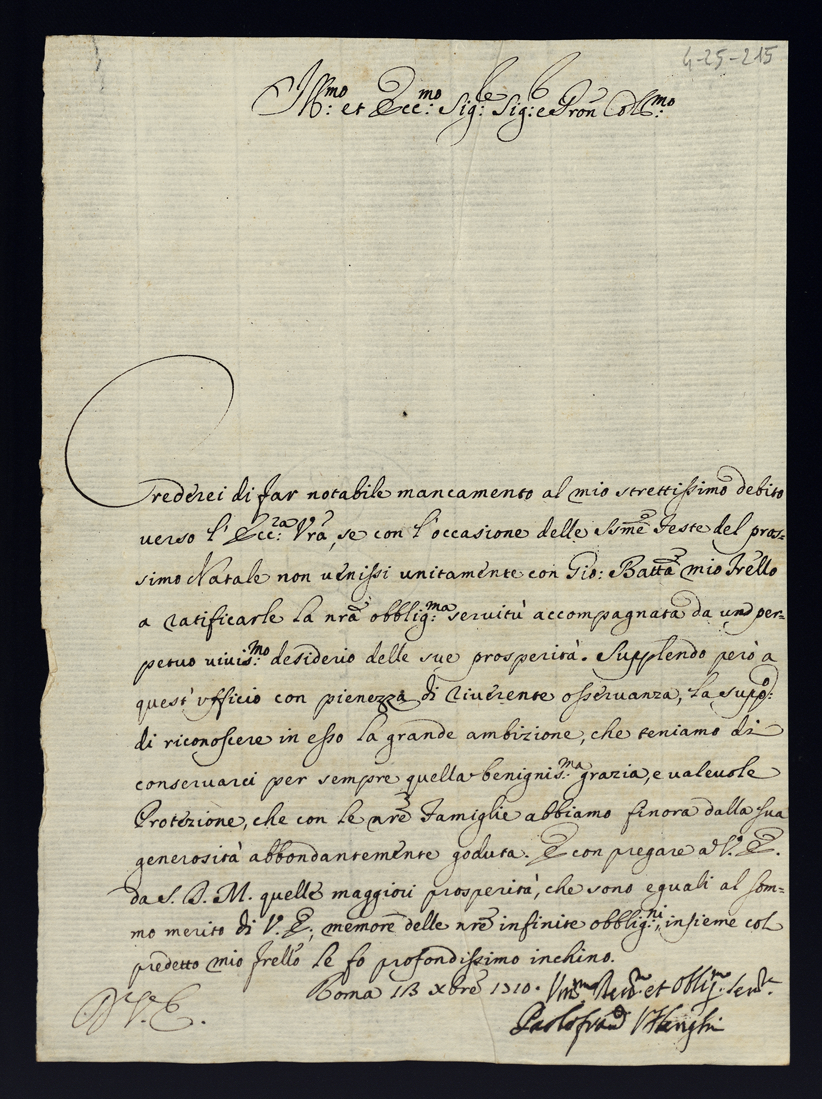 4-25-215
Ill.mo et Ecc.mo Sig.le Sig.e Pron Col.mo
Crederei di far notabile mancamento al mio strettissimo debito
verso l'Ecc.ra Vrã, se con l'occasione delle Ssme Feste del pros=
simo Natale non venissi unitamente con Gio: Batta mio frello
a ratificarle la nrã obblig.ma servitù accompagnata da un per=
petuo vivis.mo desiderio delle sue prosperità. Supplendo però a
quest'vfficio con pienezza di riverente osservanza, la supp.o
di riconoscere in esso la grande ambizione, che teniamo di
conservarci per sempre quella benignis.ma grazia, e valevole
Protezione, che con le nrẽ Famiglie abbiamo finora dalla sua
generosità abbondantemente goduta. E con pregare a V. E.
da S. D. M. quelle maggiori prosperità, che sono eguali al som=
mo merito di V. E., memore delle nrẽ infinite obblig.ni, insieme col
predetto mio frello le fo profondissimo inchino.
Roma 13 Xbre 1710.
D. V. E.
et Obblig.